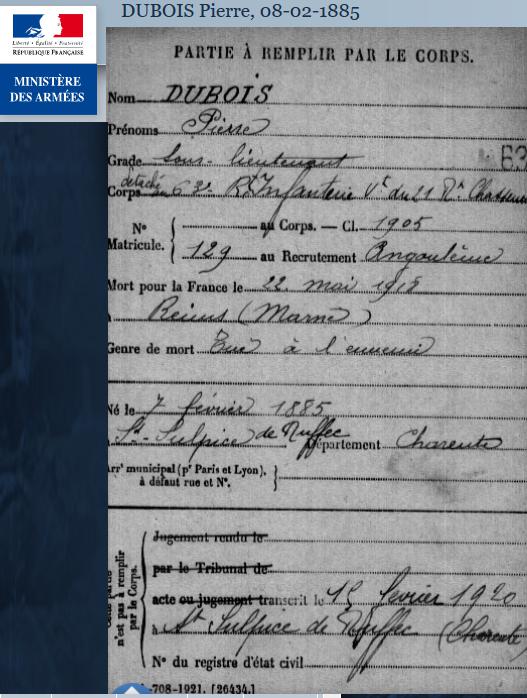 DUBOIS Pierre, 08-02-1885
Liberté • Égalité • Fraternité
RÉPUBLIQUE FRANÇAISE
MINISTÈRE
DES ARMÉES
PARTIE À REMPLIR PAR LE CORPS.
Nom DUBOIS
Prénoms Pierre
Grade Sous-lieutenant
63
détaché
Corps au 63e Rt Infanterie Vt du 21 Rt Chasseurs
No au Corps. — Cl. 1905
Matricule. 129 au Recrutement Angoulême
Mort pour la France le 22 mai 1918
à Reims (Marne)
Genre de mort Tué à l'ennemi
Né le 7 février 1885
St-Sulpice de Ruffec Département Charente
Arrt municipal (pr Paris et Lyon),
à défaut rue et No.
Cette partie n'est pas à remplir par le Corps.
Jugement rendu le
par le Tribunal de
acte ou jugement transcrit le 15 février 1920
à St Sulpice de Ruffec (Charente)
No du registre d'état civil
-708-1921. [26434.]